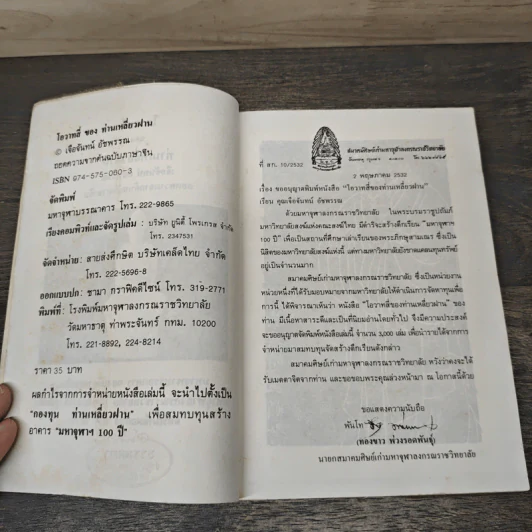 โอวาทสี่ ของ ท่านเหลี่ยวฝาน
© เจือจันทน์ อัชพรรณ
ถอดความจากต้นฉบับภาษาจีน
ISBN 974-575-080-3
จัดพิมพ์
มหาจุฬาบรรณาคาร โทร. 222-9865
เรียงคอมพิวท์และจัดรูปเล่ม : บริษัท ยูนิตี้ โพรเกรส จำกัด
โทร. 2347531
จัดจำหน่าย : สายส่งศึกษิต บริษัทเคล็ดไทย จำกัด
โทร. 222-5696-8
ออกแบบปก : ชามา กราฟิคดีไซน์ โทร. 319-2771
พิมพ์ที่ : โรงพิมพ์มหาจุฬาลงกรณราชวิทยาลัย
วัดมหาธาตุ ท่าพระจันทร์ กทม. 10200
โทร. 221-8892, 224-8214
ราคา 35 บาท
ผลกำไรจากการจำหน่ายหนังสือเล่มนี้ จะนำไปตั้งเป็น
"กองทุน ท่านเหลี่ยวฝาน" เพื่อสมทบทุนสร้าง
อาคาร "มหาจุฬาฯ 100 ปี"
สมาคมศิษย์เก่ามหาจุฬาลงกรณราชวิทยาลัย
ที่ สกม. 10/2532
2 พฤษภาคม 2532
เรื่อง ขออนุญาตพิมพ์หนังสือ "โอวาทสี่ของท่านเหลี่ยวฝาน"
เรียน คุณเจือจันทน์ อัชพรรณ
ด้วยมหาจุฬาลงกรณราชวิทยาลัย ในพระบรมราชูปถัมภ์
มหาวิทยาลัยสงฆ์แห่งคณะสงฆ์ไทย มีดำริจะสร้างตึกเรียน "มหาจุฬาฯ
100 ปี" เพื่อเป็นสถานที่ศึกษาเล่าเรียนของพระภิกษุสามเณร ซึ่งเป็น
นิสิตของมหาวิทยาลัยสงฆ์แห่งนี้ แต่ทางมหาวิทยาลัยยังขาดแคลนทุนทรัพย์
อยู่เป็นจำนวนมาก
สมาคมศิษย์เก่ามหาจุฬาลงกรณราชวิทยาลัย ซึ่งเป็นหน่วยงาน
หน่วยหนึ่งที่ได้รับมอบหมายจากมหาวิทยาลัยให้ดำเนินการจัดหาทุนเพื่อ
การนี้ ได้พิจารณาเห็นว่า หนังสือ "โอวาทสี่ของท่านเหลี่ยวฝาน" ของ
ท่าน มีเนื้อหาสาระดีและเป็นที่นิยมอ่านโดยทั่วไป จึงมีความประสงค์
จะขออนุญาตจัดพิมพ์หนังสือเล่มนี้ จำนวน 3,000 เล่ม เพื่อนำรายได้จากการ
จำหน่ายมาสมทบทุนจัดสร้างตึกเรียนดังกล่าว
สมาคมศิษย์เก่ามหาจุฬาลงกรณราชวิทยาลัย หวังว่าคงจะได้
รับเมตตาจิตจากท่าน และขอขอบพระคุณล่วงหน้ามา ณ โอกาสนี้ด้วย
ขอแสดงความนับถือ
พันโท
(ทองขาว พ่วงรอดพันธุ์)
นายกสมาคมศิษย์เก่ามหาจุฬาลงกรณราชวิทยาลัย